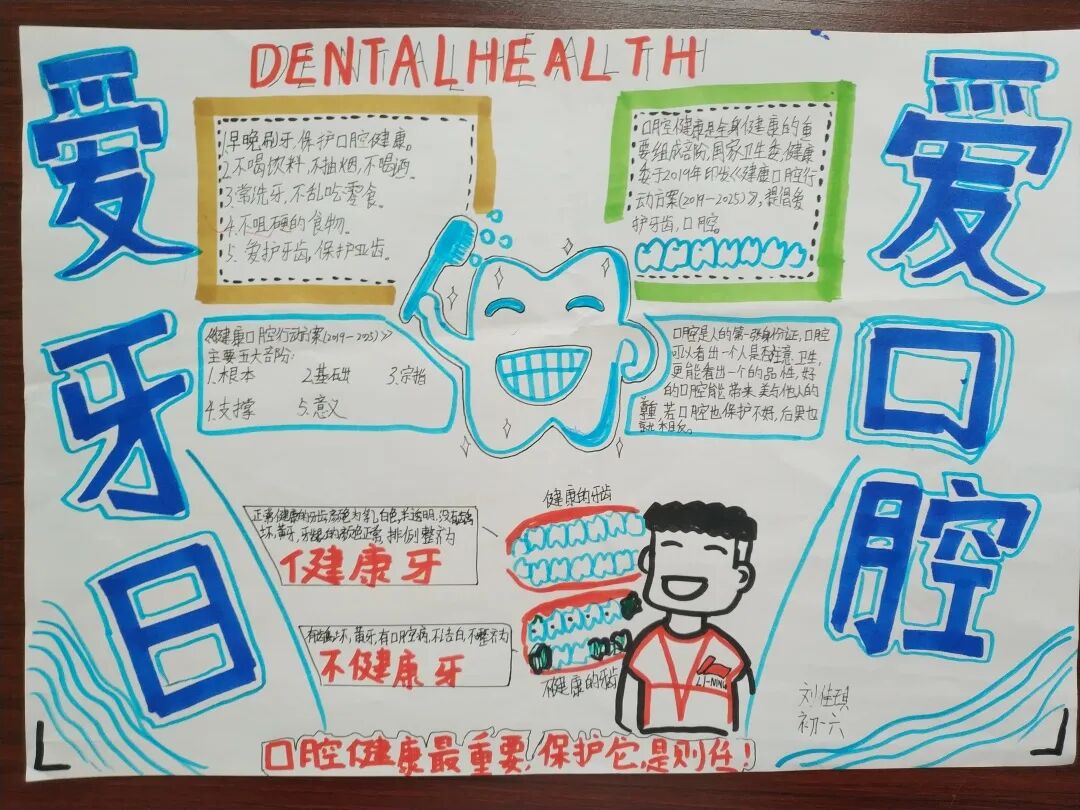 DENTALHEALTH
爱牙日
爱口腔
1.早晚刷牙,保护口腔健康。
2.不喝饮料,不抽烟,不喝酒。
3.常洗牙,不乱吃零食。
4.不咀硬的食物。
5.爱护牙齿,保护亚齿。
口腔健康是全身健康的重
要组成部阶,国家卫生委,健康
委于2019年印发《健康口腔行
动方案(2019-2025)》,提倡爱
护牙齿,口腔。
《健康口腔行动方案(2019-2025)》
主要五大部阶:
1.根本 2.基础 3.宗指
4.支撑 5.意义
口腔是人的第一张身份证,口腔
可以看出一个人是否注意卫生,
更能看出一个的品性,好
的口腔能带来美与他人的
尊重,若口腔也保护不好,后果也
就相反。
正常健康的牙齿颜色为乳白色,半透明,没有
坏,黄牙,牙龈的颜色正常,排例整齐为
健康牙
健康的牙齿
有坏,黄牙,有口腔病,不洁白,不整齐为
不健康牙
不健康的牙齿
LI-NING
刘佳琪
初一六
口腔健康最重要,保护它,是则任!